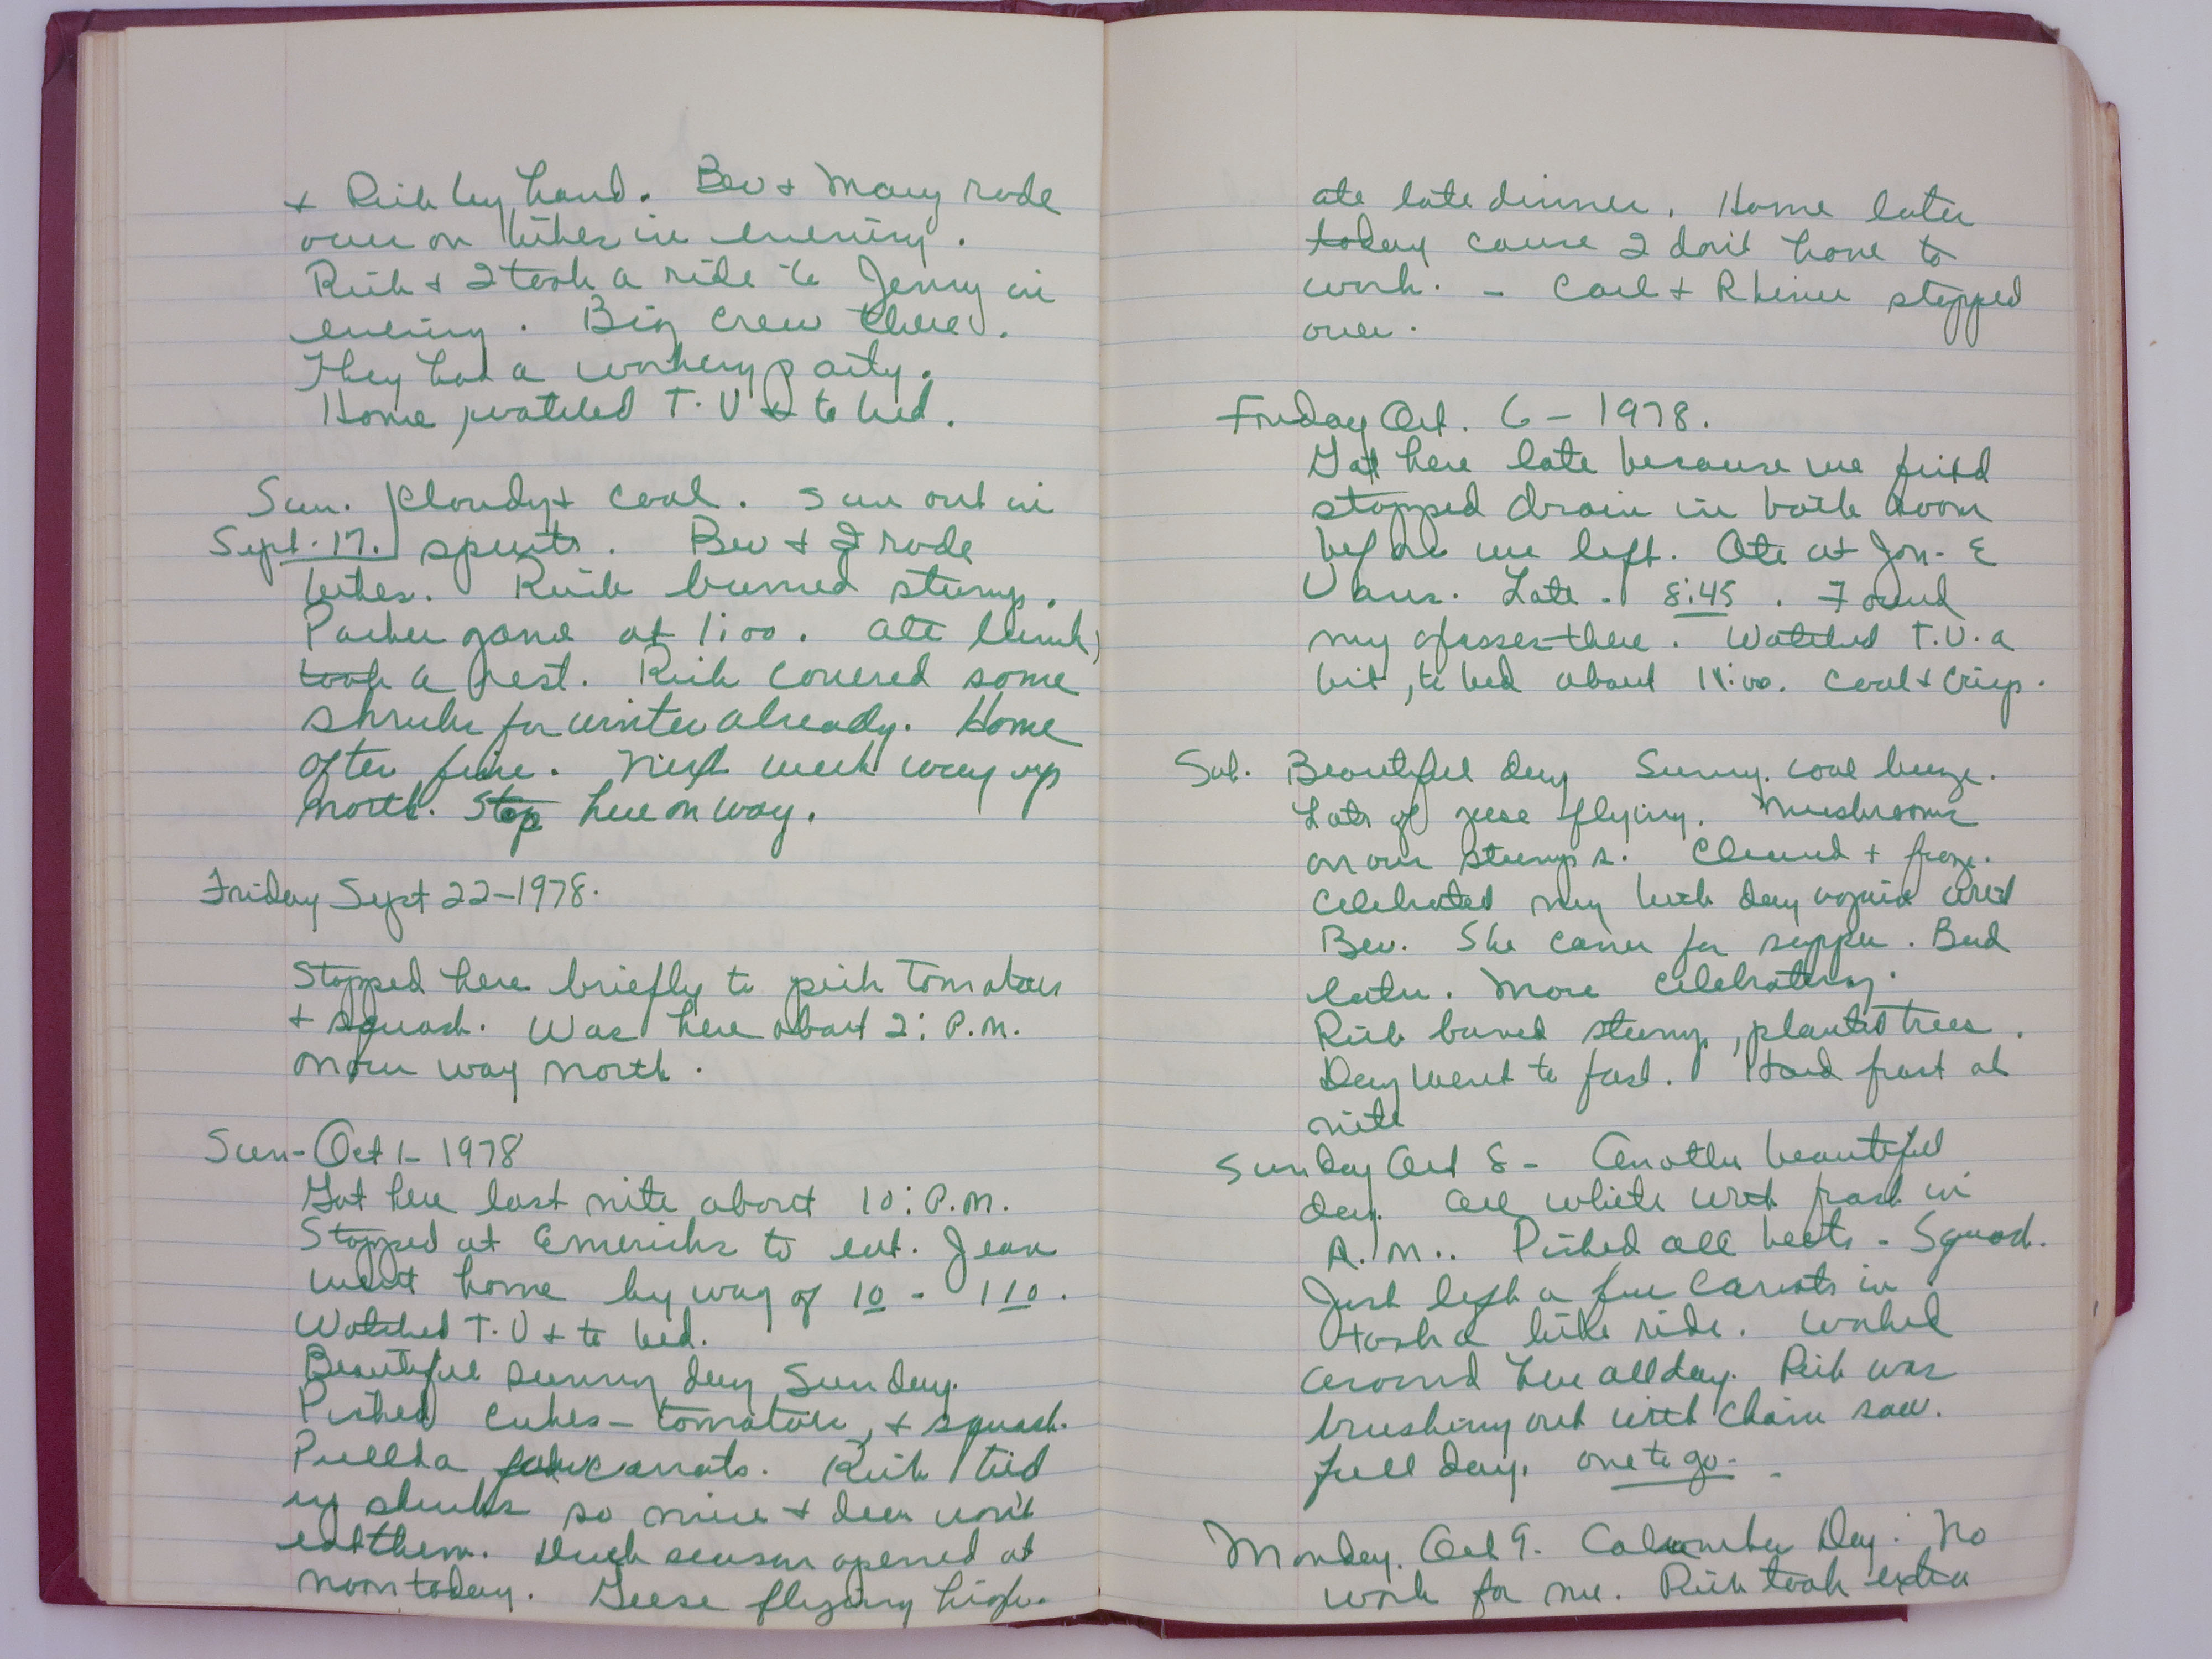 + Rich by hand. Bev + Mary rode
over on bikes in evening.
Rich + I took a ride to Jenny in
evening. Big crew there.
They had a working party.
Home, watched T.V + to bed.
Sun. Cloudy + cool. Sun out in
Sept. 17. spurts. Bev + I rode
bikes. Rich burned stump.
Packer game at 1:00. Ate lunch,
took a rest. Rich covered some
shrubs for winter already. Home
after five. Next week way up
north. Stop here on way.
Friday Sept 22-1978.
Stopped here briefly to pick tomatoes
+ squash. Was here about 2: P.M.
on our way north.
Sun- Oct 1- 1978
Got here last nite about 10: P.M.
Stopped at Emerichs to eat. Jean
went home by way of 10 - 110.
Watched T.V + to bed.
Beautiful sunny day Sunday.
Picked cukes - tomatoes, + squash.
Pulled a few carrots. Rich tied
up shrubs so mice + deer won't
eat them. Duck season opened at
noon today. Geese flying high.
ate late dinner. Home later
today cause I don't have to
work. - Carl + Rhiner stopped
over.
Friday Oct. 6 - 1978.
Got here late because we fixed
stopped drain in bath room
before we left. Ate at Jon- E
Vans. Late. 8:45. Found
my glasses there. Watched T.V. a
bit, to bed about 11:00. Cool + crisp.
Sat. Beautiful day Sunny. cool breeze.
Lots of geese flying. Mushrooms
on our stumps. Cleaned + froze.
Celebrated my birth day again with
Bev. She came for supper. Bud
later. More celebrating.
Rich burned stump, planted trees.
Day went to fast. Hard frost at
nite
Sunday Oct 8 - Another beautiful
day. All white with frost in
A.M.. Picked all beets - Squash.
Just left a few carrots in
took a bike ride. Worked
around here all day. Rich was
brushing out with chain saw.
full day. one to go. -
Monday. Oct 9. Columbus Day. No
work for me. Rich took extra